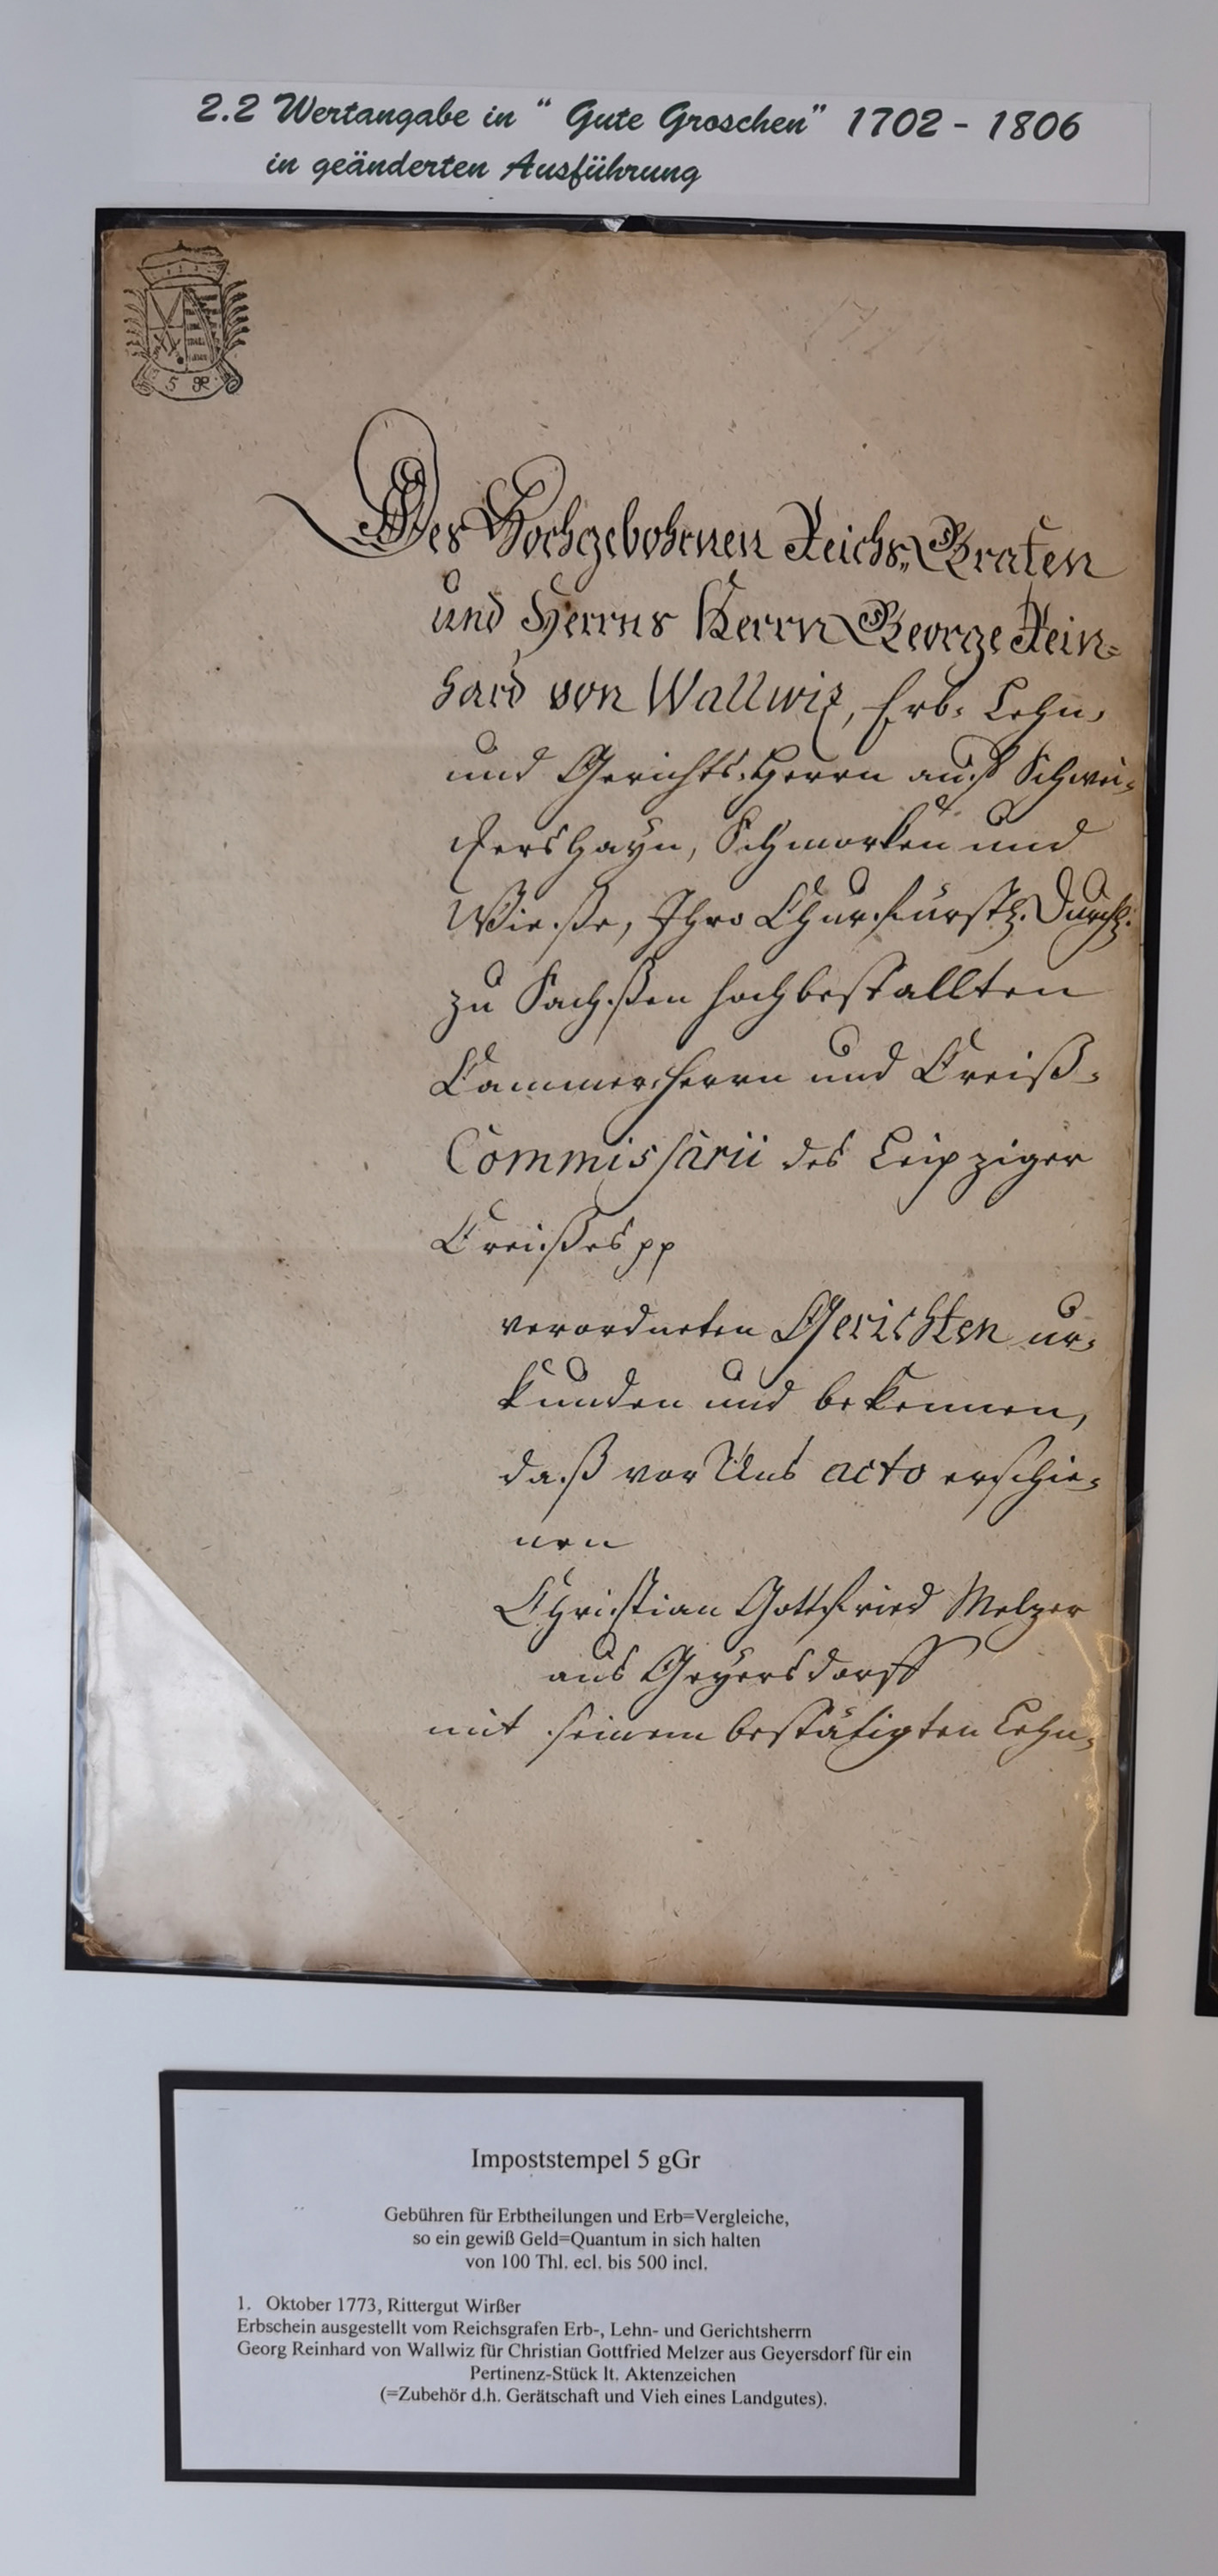 2.2 Wertangabe in “ Gute Groschen” 1702 - 1806
in geänderten Ausführung
5 gR
Des Hochgebohrnen Reichs„Grafen
und Herrns Herrn George Rein=
hard von Wallwiz, Erb= Lehn=
und Gerichts=Herrn auf Schwei=
kershayn, Schmorken und
Wieße, Ihro Churfürstl. Durchl.
zu Sachßen hochbestallten
Cammerherrn und Creiß=
Commissarii des Leipziger
Creißes pp
verordneten Gerichten ur=
kunden und bekennen,
daß vor Uns acto erschie=
nen
Christian Gottfried Melzer
aus Geyersdorff
mit seinem bestätigten Lehn=
Impoststempel 5 gGr
Gebühren für Erbtheilungen und Erb=Vergleiche,
so ein gewiß Geld=Quantum in sich halten
von 100 Thl. ecl. bis 500 incl.
1. Oktober 1773, Rittergut Wirßer
Erbschein ausgestellt vom Reichsgrafen Erb-, Lehn- und Gerichtsherrn
Georg Reinhard von Wallwiz für Christian Gottfried Melzer aus Geyersdorf für ein
Pertinenz-Stück lt. Aktenzeichen
(=Zubehör d.h. Gerätschaft und Vieh eines Landgutes).